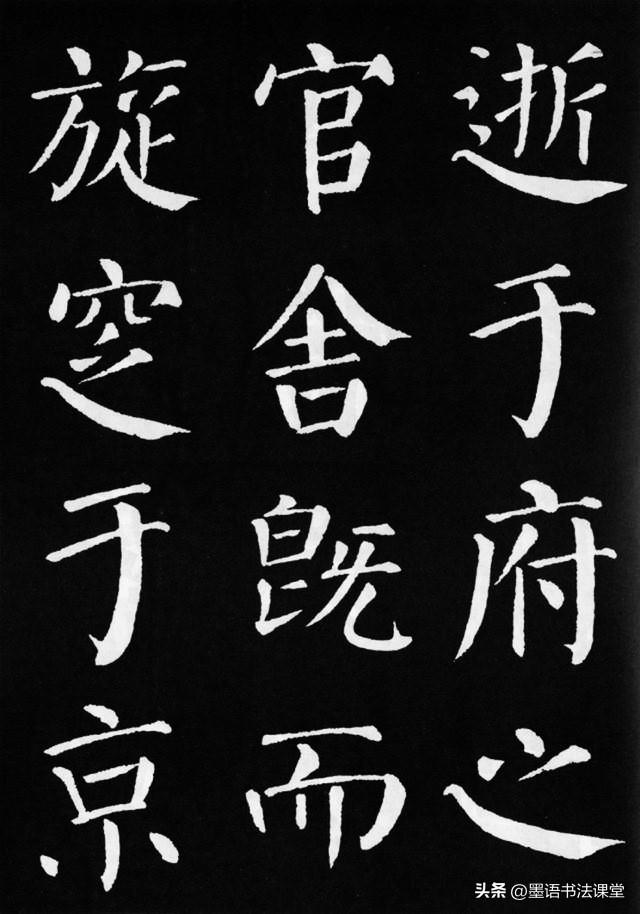 逝于府之
官舍既而
旋窆于京
头条 @墨语书法课堂